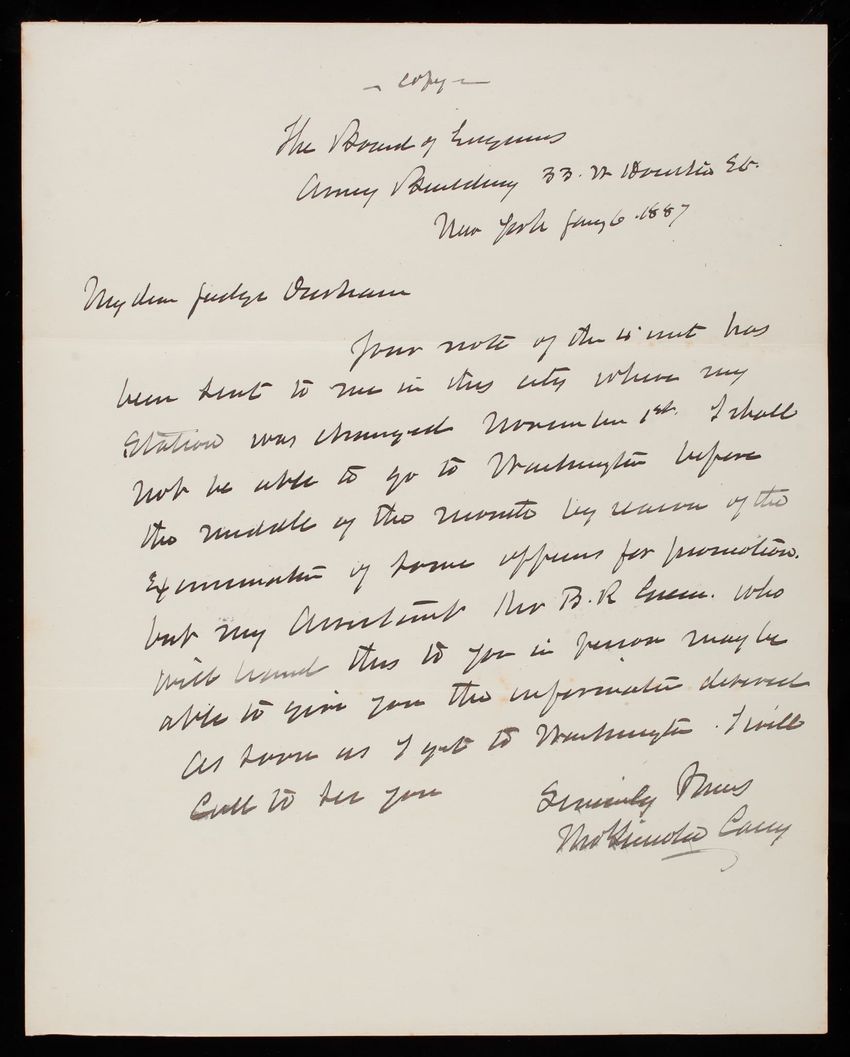 - copy -
The Board of Engineers
Army Building 33. W Houston St.
New York Jany 6. 1887
My dear Judge Durham
Your note of the 4" inst has
been sent to me in this city where my
Station was changed November 1st. I shall
not be able to go to Washington before
the middle of the month by reason of the
Examination of some officers for promotion.
but my Assistant Mr B. R Green. who
will hand this to you in person may be
able to give you the information desired
As soon as I get to Washington. I will
Call to see you
Sincerely Yours
Thos Lincoln Casey